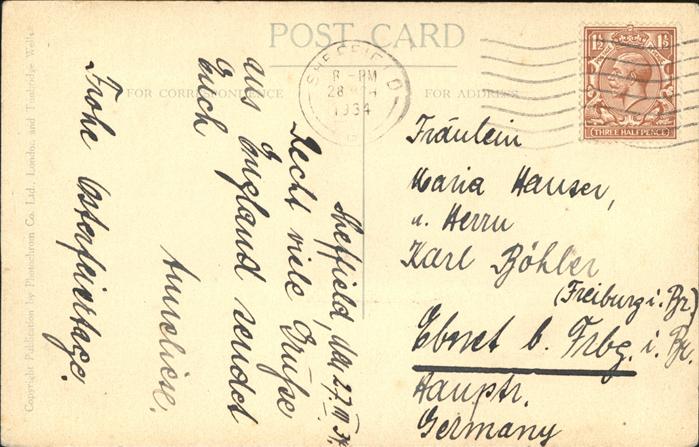 POST CARD
FOR CORRESPONDENCE
FOR ADDRESS
SHEFFIELD
8 - PM
28 MCH
1934
1½ 1½
THREE HALFPENCE
Sheffield, den 27. III. 34.
Recht viele Grüße
aus England sendet
Euch
Anneliese.
Frohe Osterfeiertage.
Fräulein
Maria Hauser,
u. Herrn
Karl Böhler
(Freiburg i. Br.)
Ebnet b. Frbg. i. Br.
Hauptr.
Germany
Copyright Publication by Photochrom Co. Ltd., London, and Tunbridge Wells.